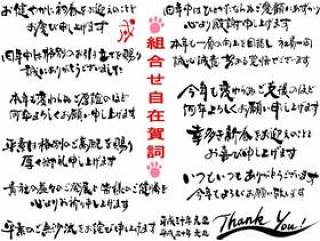 お健やかに新春をお迎えのことと
お慶び申し上げます
旧年中は格別のお引立てを賜り
誠にありがとうございました
本年も変わらぬご厚誼のほど
何卒よろしくお願い申し上げます
平素は格別のご高配を賜り
厚く御礼申し上げます
貴社の益々のご発展と皆様のご健勝を
心よりお祈り申し上げます
平素のご無沙汰をお詫び申し上げます
戌
組合せ自在賀詞
旧年中はひとかたならぬご愛顧にあずかり
心より感謝申し上げます
本年も一層の向上を目指し 社員一同
誠心誠意 努める覚悟でございます
今年も変わらぬご支援のほど
何卒よろしくお願い申し上げます
幸多き新春をお迎えのことと
お喜び申し上げます
いつもいつもありがとうございます
今年もよろしくお願い致します
平成三十年 元旦
平成三十年 元旦
Thank You!